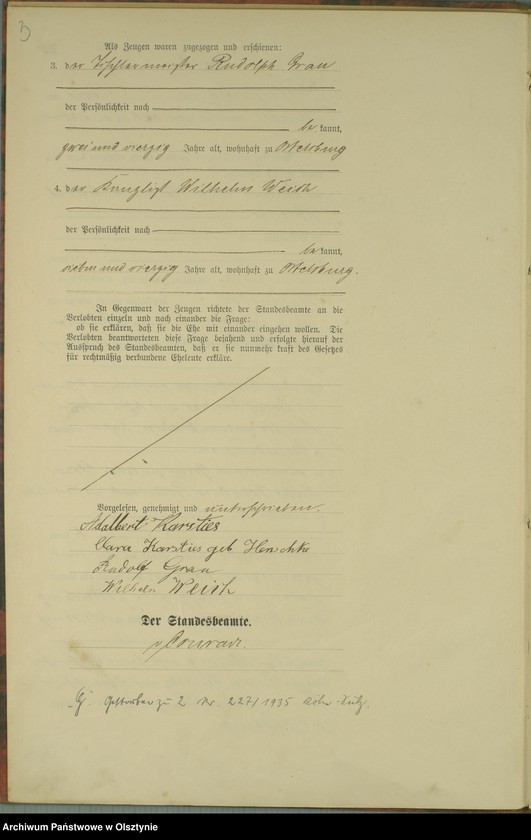 3
Als Zeugen waren zugezogen und erschienen:
3. der Tischlermeister Rudolph Grau
der Persönlichkeit nach
bekannt,
zwei und vierzig Jahre alt, wohnhaft zu Ortelsburg
4. der Kanzlist Wilhelm Weich
der Persönlichkeit nach
bekannt,
sieben und vierzig Jahre alt, wohnhaft zu Ortelsburg.
In Gegenwart der Zeugen richtete der Standesbeamte an die
Verlobten einzeln und nach einander die Frage:
ob sie erklären, daß sie die Ehe mit einander eingehen wollen. Die
Verlobten beantworteten diese Frage bejahend und erfolgte hierauf der
Ausspruch des Standesbeamten, daß er sie nunmehr kraft des Gesetzes
für rechtmäßig verbundene Eheleute erkläre.
Vorgelesen, genehmigt und unterschrieben.
Adalbert Karsties
Clara Karsties geb Henschke
Rudolf Grau
Wilhelm Weich
Der Standesbeamte.
v Conrad.
gestorben zu 2. Nr. 227/1935
Archiwum Państwowe w Olsztynie